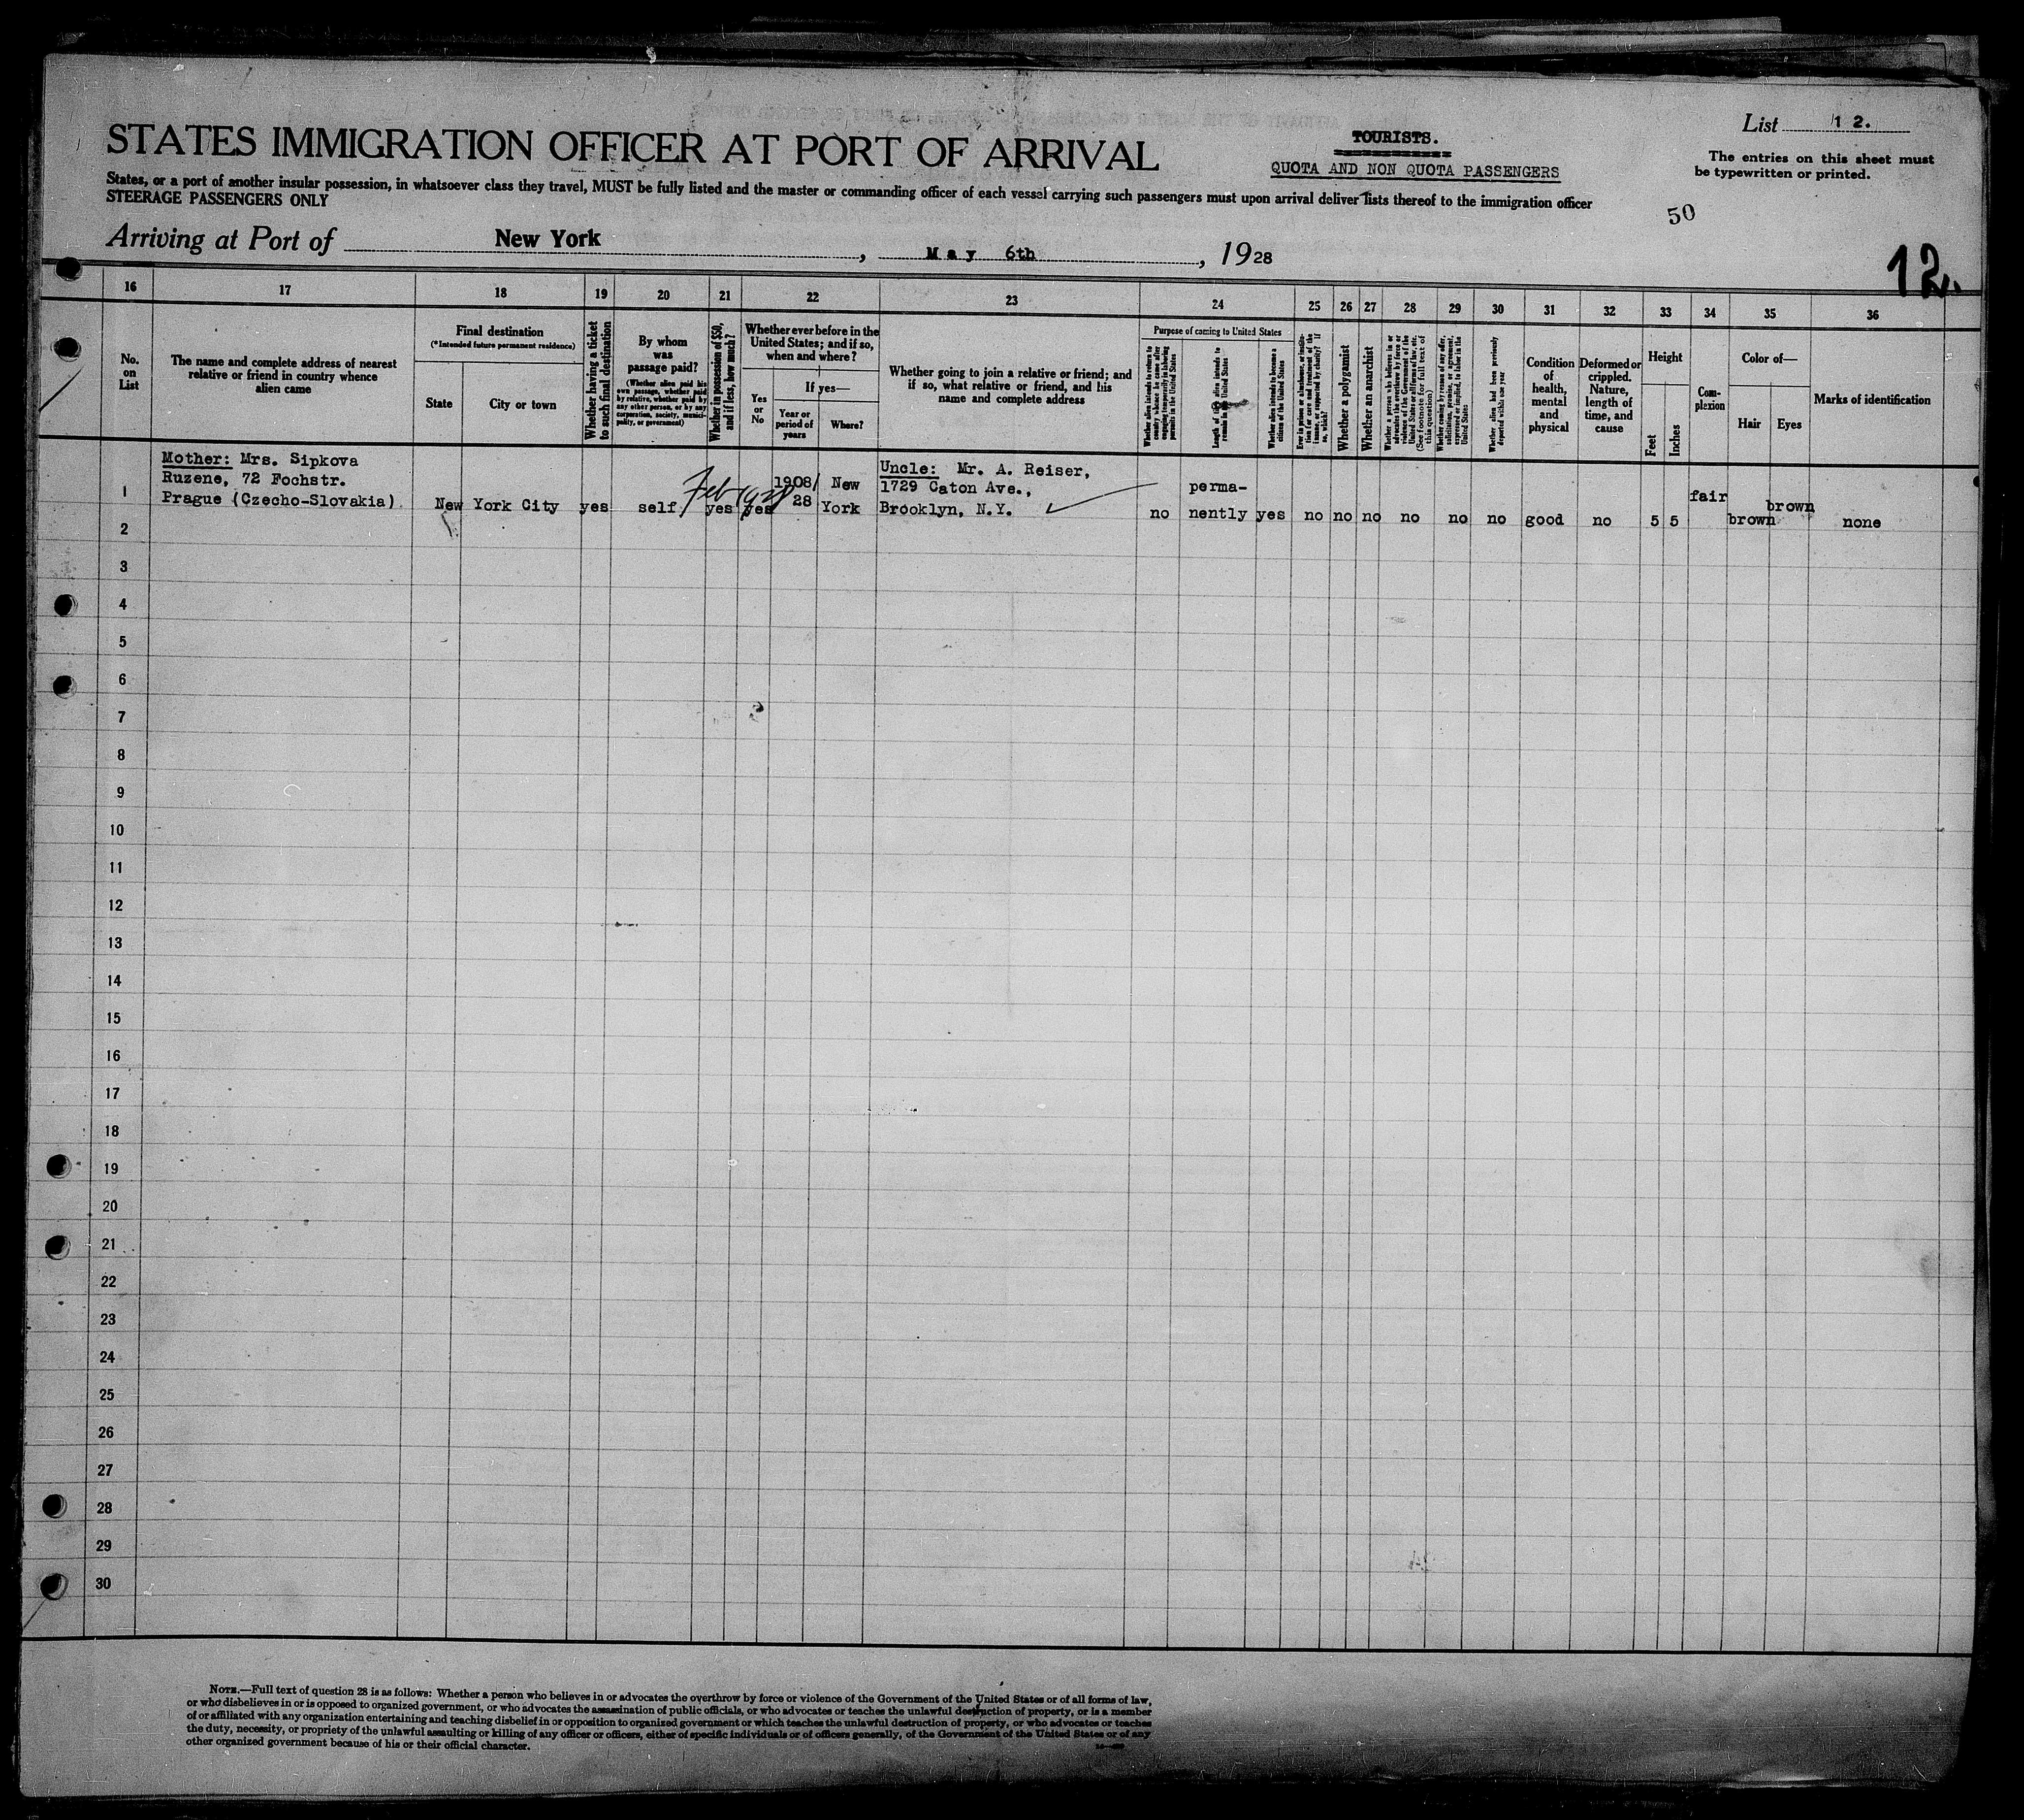 List 12.
STATES IMMIGRATION OFFICER AT PORT OF ARRIVAL
TOURISTS.
QUOTA AND NON QUOTA PASSENGERS
The entries on this sheet must
be typewritten or printed.
States, or a port of another insular possession, in whatsoever class they travel, MUST be fully listed and the master or commanding officer of each vessel carrying such passengers must upon arrival deliver lists thereof to the immigration officer
STEERAGE PASSENGERS ONLY
50
Arriving at Port of New York, May 6th, 1928
12.
16 17 18 19 20 21 22 23 24 25 26 27 28 29 30 31 32 33 34 35 36
No.
on
List
The name and complete address of nearest
relative or friend in country whence
alien came
Final destination
(*Intended future permanent residence)
State
City or town
Whether having a ticket
to such final destination
By whom
was
passage paid?
(Whether alien paid his
own passage, whether paid
by relative, whether paid by
any other person, or by any
corporation, society, munici-
pality, or government)
Whether in possession of $50,
and if less, how much?
Whether ever before in the
United States; and if so,
when and where?
Yes
or
No
If yes—
Year or
period of
years
Where?
Whether going to join a relative or friend; and
if so, what relative or friend, and his
name and complete address
Purpose of coming to United States
Whether alien intends to return to
country whence he came after
engaging temporarily in laboring
pursuits in the United States
Length of time alien intends to
remain in the United States
Whether alien intends to become a
citizen of the United States
Ever in prison or almshouse, or institu-
tion for care and treatment of the
insane, or supported by charity? If
so, which?
Whether a polygamist
Whether an anarchist
Whether a person who believes in or
advocates the overthrow by force or
violence of the Government of the
United States or all forms of law, etc.
(See footnote for full text of
this question)
Whether coming by reason of any offer,
solicitation, promise, or agreement,
expressed or implied, to labor in the
United States
Whether alien had been previously
deported within one year
Condition
of
health,
mental
and
physical
Deformed or
crippled.
Nature,
length of
time, and
cause
Height
Feet
Inches
Com-
plexion
Color of—
Hair
Eyes
Marks of identification
1
Mother: Mrs. Sipkova
Ruzene, 72 Fochstr.
Prague (Czecho-Slovakia)
New York City
yes
self
Feb 1928
yes
yes
1908/
28
New
York
Uncle: Mr. A. Reiser,
1729 Caton Ave.,
Brooklyn, N.Y.
no
perma-
nently
yes
no no no no no no good no 5 5 fair brown brown none
2
3
4
5
6
7
8
9
10
11
12
13
14
15
16
17
18
19
20
21
22
23
24
25
26
27
28
29
30
NOTE.—Full text of question 28 is as follows: Whether a person who believes in or advocates the overthrow by force or violence of the Government of the United States or of all forms of law,
or who disbelieves in or is opposed to organized government, or who advocates the assassination of public officials, or who advocates or teaches the unlawful destruction of property, or is a member
of or affiliated with any organization entertaining and teaching disbelief in or opposition to organized government or which teaches the unlawful destruction of property, or who advocates or teaches
the duty, necessity, or propriety of the unlawful assaulting or killing of any officer or officers, either of specific individuals or of officers generally, of the Government of the United States or of any
other organized government because of his or their official character.